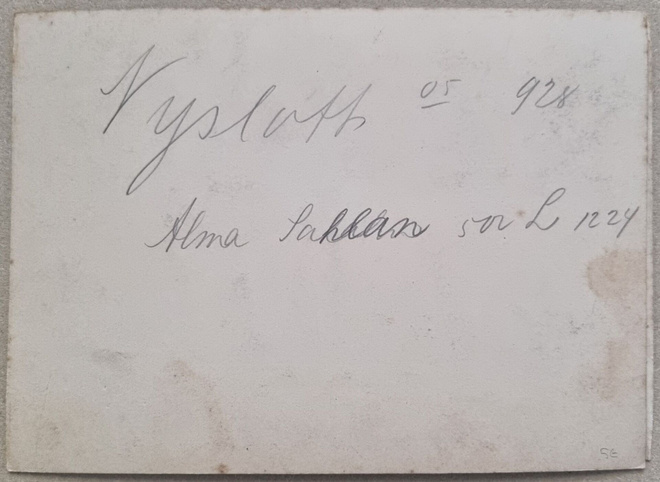 Nyslott 05 928
Alma Sahlan 502 L 1224